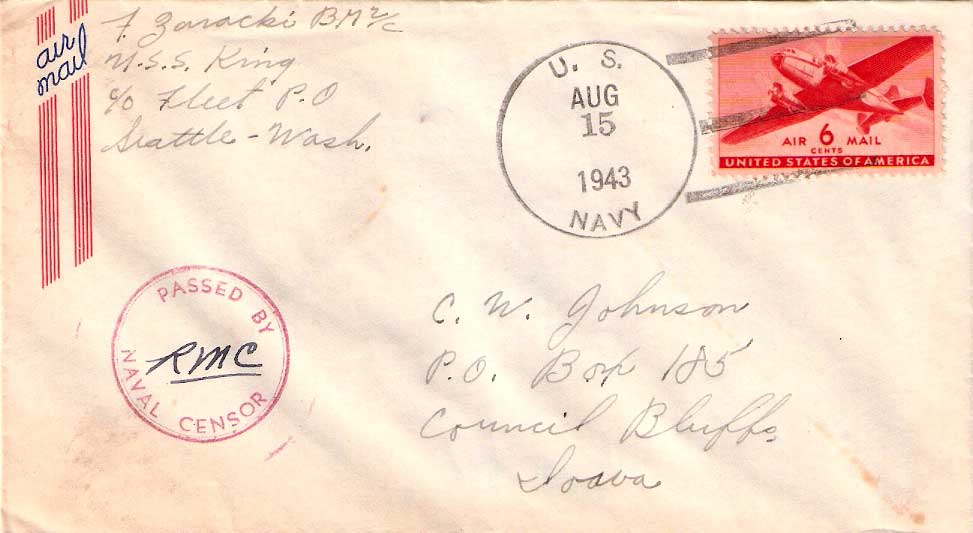 air
mail
F Zaracki BM 2/c
U.S.S. King
c/o Fleet P.O
Seattle - Wash.
U. S.
AUG
15
1943
NAVY
AIR 6 MAIL
CENTS
UNITED STATES OF AMERICA
PASSED BY
RMC
NAVAL CENSOR
C. W. Johnson
P.O. Box 185
Council Bluffs
Iowa